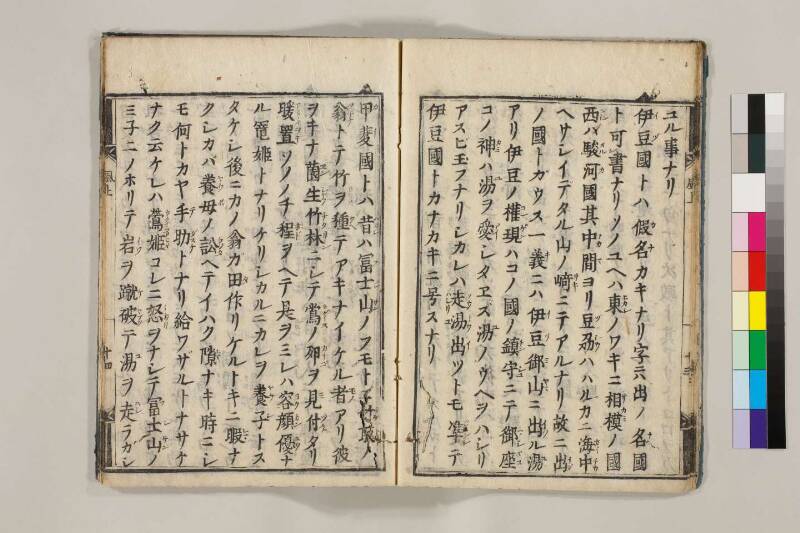 ユル事ナリ
伊豆國トハ假名カキナリ字ニ出ノ名國
ト可書ナリソノユヘハ東ノワキニ相模ノ國
西ハ駿河國其中間ヨリ豆刕ハハルカニ海中
ヘサシイテタル山ノ﨑ニテアルナリ故ニ出
ノ國トガウス一義ニハ伊豆御山ニ出ル湯
アリ伊豆ノ権現ハコノ國ノ鎮守ニテ御座
コノ神ハ湯ヲ愛シタマヒ湯ノウヘヲハシリ
アスヒ玉フナリシカレハ走湯出ツトモ準テ
伊豆國トカナカキニ号スナリ
甲斐國トハ昔ハ冨士山ノフモトニ竹取ノ
翁トテ竹ヲ種テアキナイケル者アリ彼
ヲキナ薗生竹林ニシテ鶯ノ卵ヲ見付タリ
暖置ソノノチ程ヲヘテ是ヲミレハ容顔優ナ
ル竉姫トナリケリシカルニカレヲ養子トス
タケシ後ニカノ翁カ田作リケルトキニ暇ナ
クシカバ養母ノ訟ヘテイハク隙ナキ時ニシ
モ何トカヤ手助トナリ給ワザルトナサケ
ナク云ケレハ鶯姫コレニ怒ヲナシテ冨士山ノ
ミ子ニノホリテ岩ヲ蹴破テ湯ヲ走ラカシ
十四